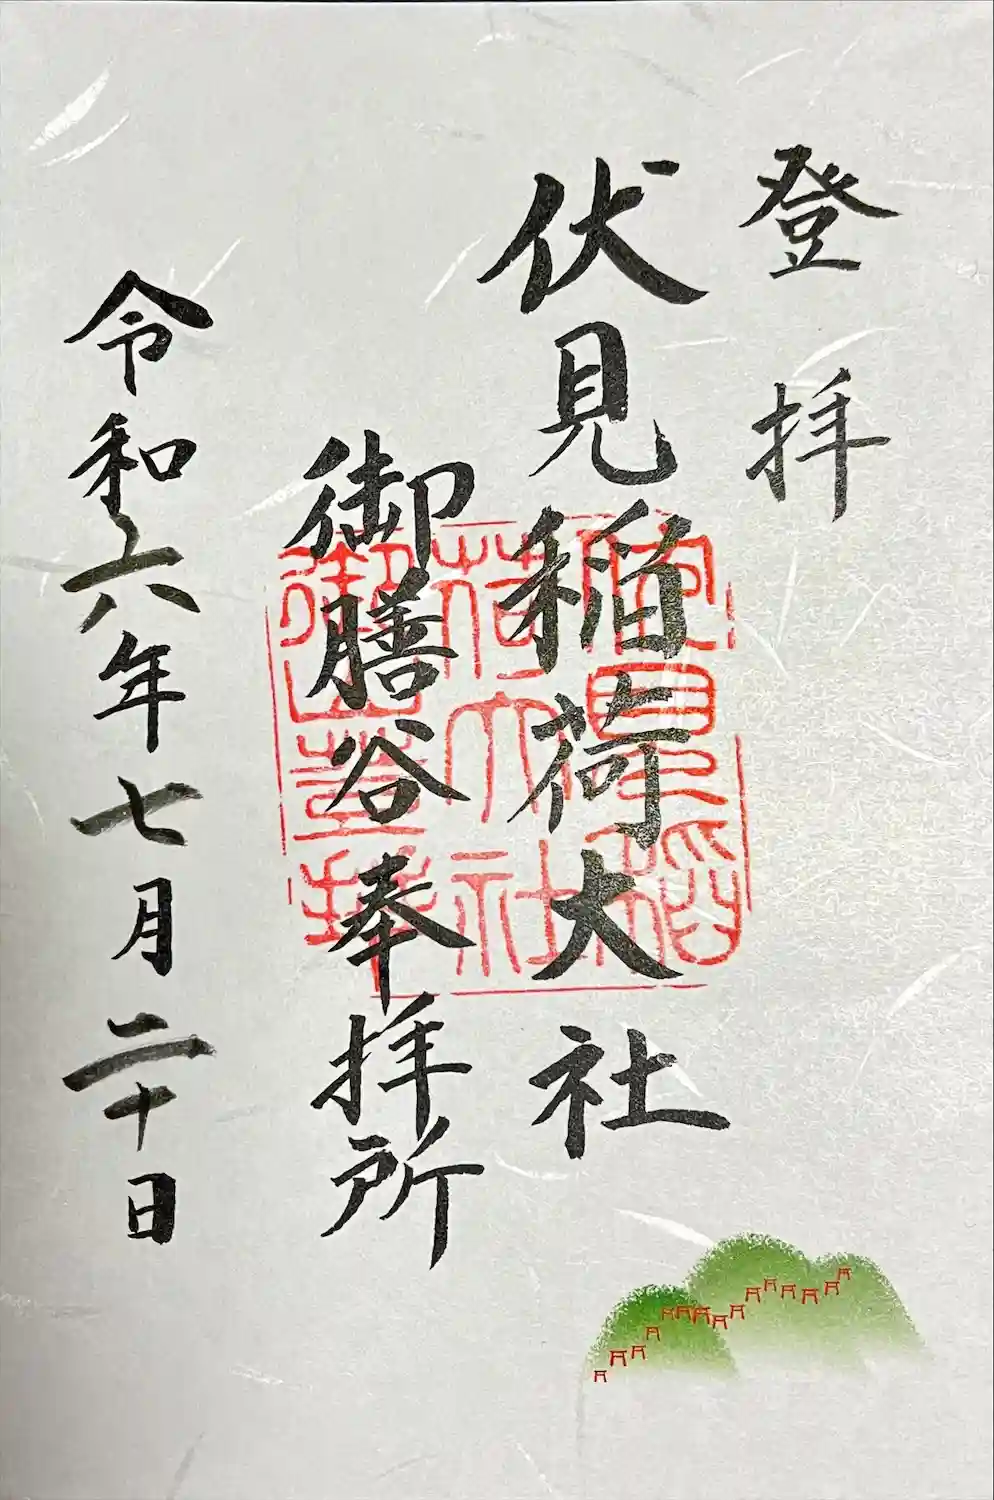 登拝
伏見稲荷大社
御膳谷奉拝所
令和六年七月二十日
伏見稲
荷大社
御山登拝